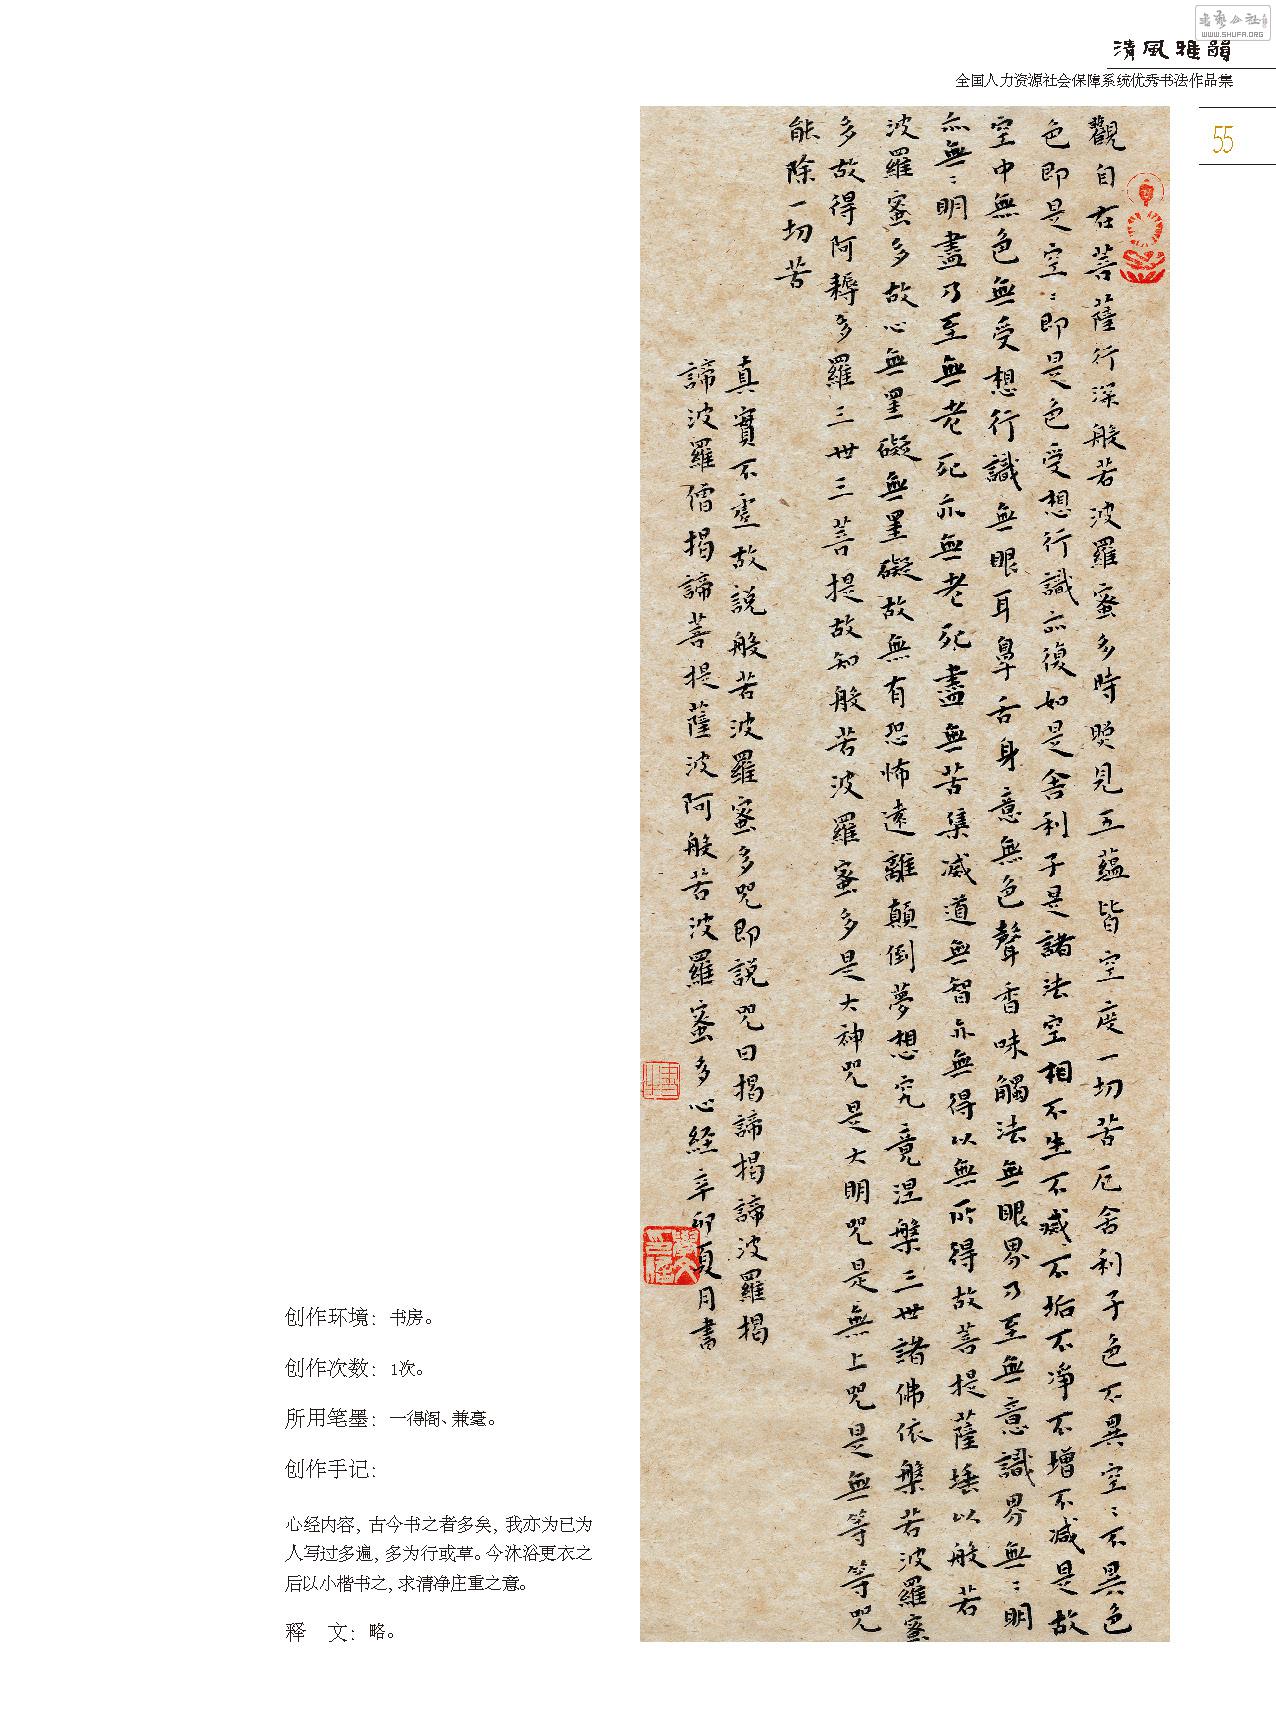 书艺公社
WWW.SHUFA.ORG
清風雅韻
全国人力资源社会保障系统优秀书法作品集
55
觀自在菩薩行深般若波羅蜜多時照見五蘊皆空度一切苦厄舍利子色不異空〻不異色
色即是空〻即是色受想行識亦復如是舍利子是諸法空相不生不滅不垢不凈不增不減是故
空中無色無受想行識無眼耳鼻舌身意無色聲香味觸法無眼界乃至無意識界無〻明
亦無〻明盡乃至無老死亦無老死盡無苦集滅道無智亦無得以無所得故菩提薩埵以般若
波羅蜜多故心無罣礙無罣礙故無有恐怖遠離顛倒夢想究竟涅槃三世諸佛依槃若波羅蜜
多故得阿耨多羅三世三菩提故知般若波羅蜜多是大神咒是大明咒是無上咒是無等等咒
能除一切苦
真實不虛故說般若波羅蜜多咒即說咒曰揭諦揭諦波羅揭
諦波羅僧揭諦菩提薩波阿般若波羅蜜多心経辛卯夏月書
创作环境：书房。
创作次数：1次。
所用笔墨：一得阁、兼毫。
创作手记：
心经内容，古今书之者多矣，我亦为已为
人写过多遍，多为行或草。今沐浴更衣之
后以小楷书之，求清净庄重之意。
释　文：略。